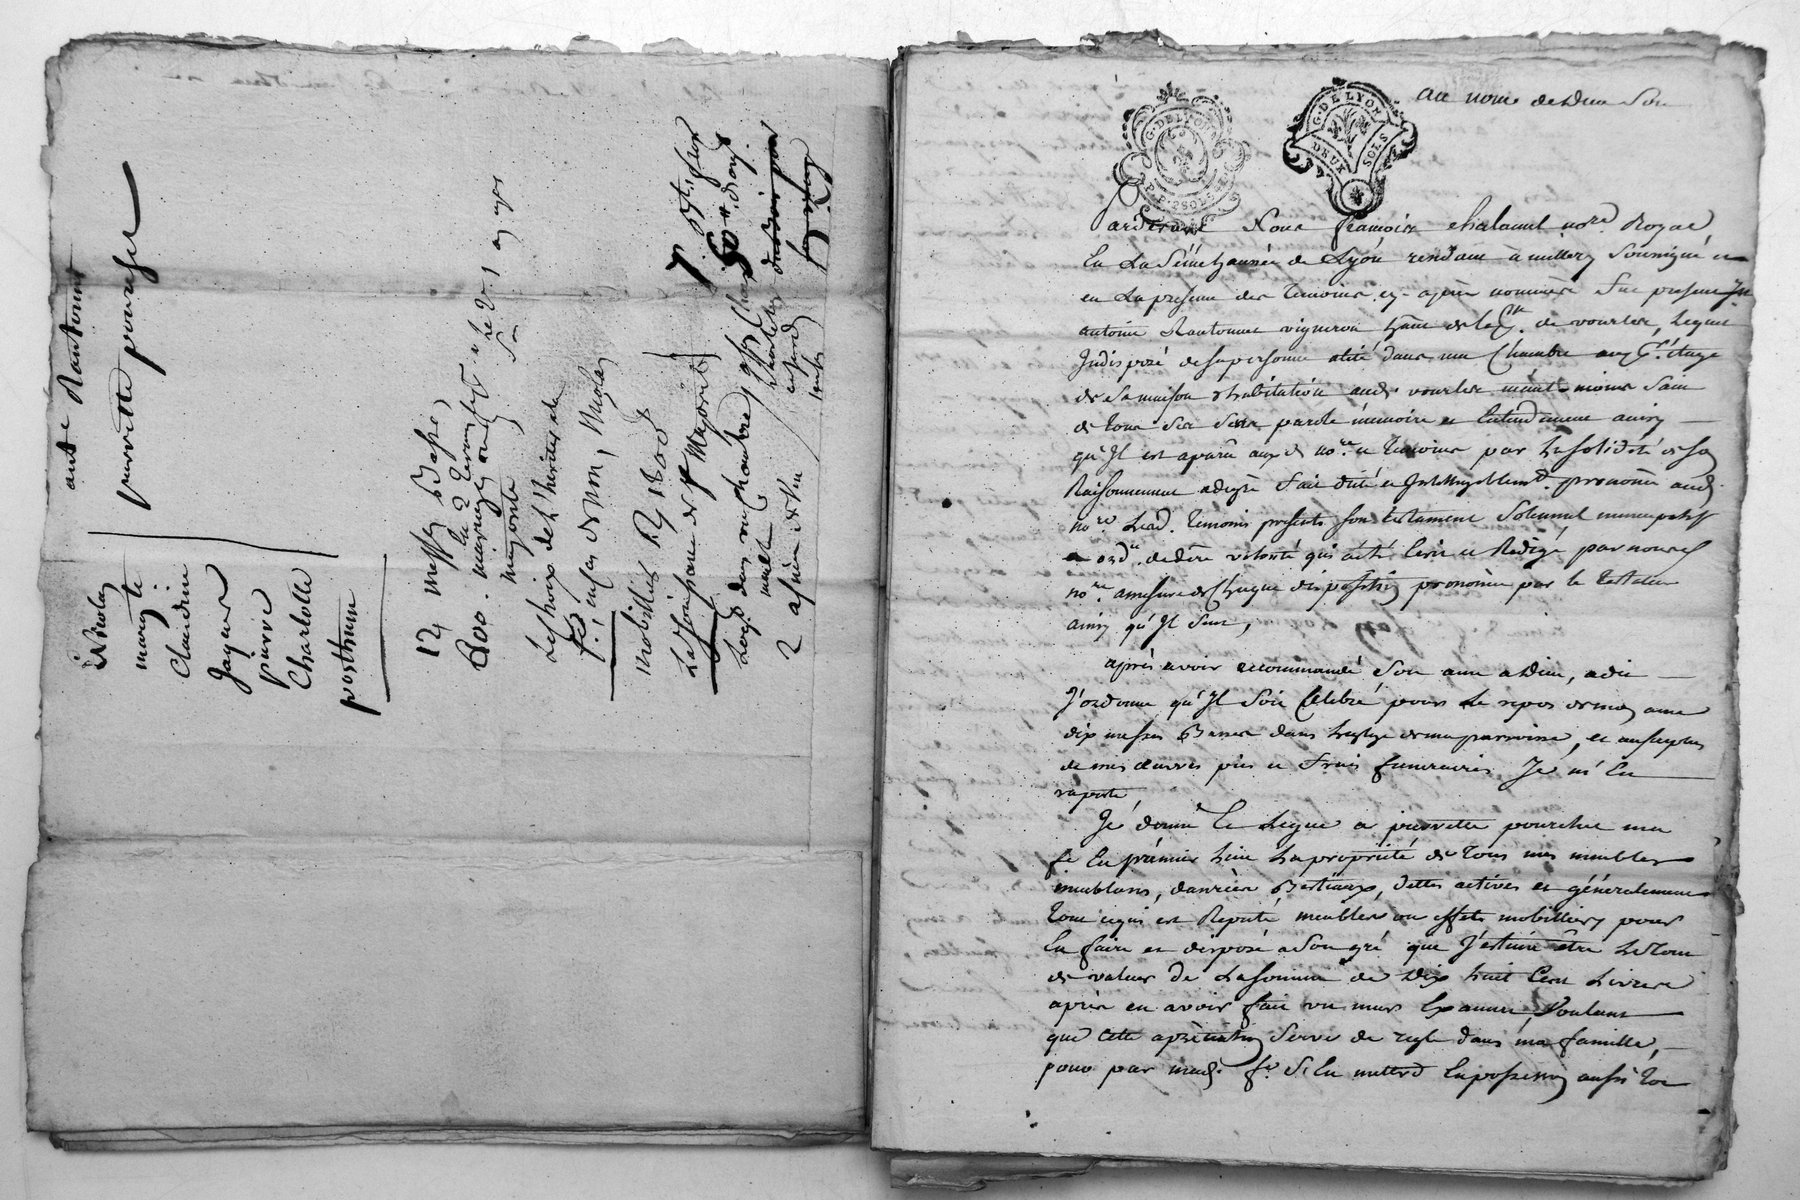 ant.e Rantonnet
pierrette pourchet
Nicolas
marg.te
Claudine
Jaques
pierre
Charlotte
posthume
12 messes Basses,
600.
majorité
Le choix de l'heritier a la
fe., enfas de non, Nicolas
Mobillier Rg 1800#
Majorité
dans une Chambre
2 asnées de Vin
au nom de Dieu Soit
G. DE LYON
G. DE LYON
DEUX SOLS
Pardevant Nous françois chalamel no.re Royal
En La Sénéchaussée de Lyon residant à millery Soussigné et
en La presence des temoins cy-après nommés fut present Sr.
antoine Rantonnet vigneron h̃ant de la p.sse de vourles, Lequel
Indisposé de sa personne alité dans une Chambre au p.er étage
de sa maison d'habitation aud. vourles néant-moins Sain
de tous Ses Sens parole mémoire et Entendement ainsy
qu'Il est aparû aux d. no.re et temoins par La solidité de Son
Raisonnement a de gré fait dicté et Intelligiblem.t prononcé aud.
no.re Esd. temoins presents son testament Solemnel nuncupatif
et ord.ce de d.ere volonté qui a été Ecrit et Redigé par nous d.
no.re a mesure de Chaque disposition prononcée par le testateur
ainsy qu'Il Suit,
après avoir recommandé Son ame a Dieu, a dit
J'ordonne qu'Il Soit Célebré pour Le repos de mon ame
dix messes Basses dans L'eglise de ma parroisse, et au surplus
de mes œuvres pies et frais funeraires Je m'En
raporte
Je donne Et Legue a pierrette pourchet ma
fe En prémier Lieu La propriété de tous mes meubles
meublans, danrées Bestiaux, dettes actives et généralement
tout ce qui est Reputé meubles ou effets mobilliers pour
En faire et disposé a Son gré que J'estime être Le tout
de valeur de La somme de Dix huit Cent Livres
après en avoir fait un mur Examen, Voulant
que Cette apréciation Serve de regle dans ma famille,
pour par mad. fe. S'En mettre En possession aussi tot